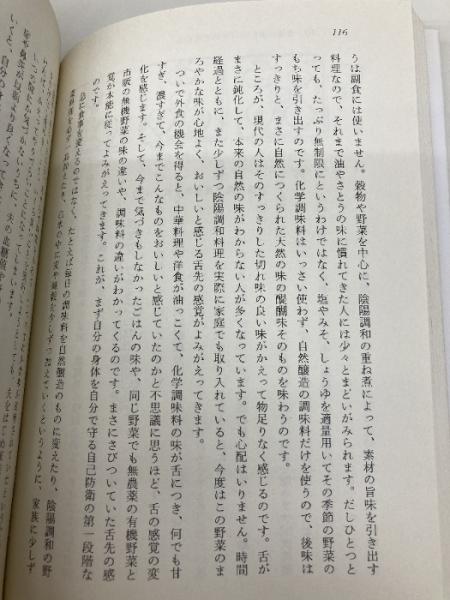 116
うは副食には使いません。穀物や野菜を中心に、陰陽調和の重ね煮によって、素材の旨味を引き出す
料理なので、それまで油やさとうの味に慣れてきた人には少々とまどいがみられます。だしひとつと
っても、たっぷり無制限にというわけではなく、塩やみそ、しょうゆを適量用いてその季節の野菜の
もち味を引き出すのです。化学調味料はいっさい使わず、自然醸造の調味料だけを使うので、後味は
すっきりと、まさに自然につくられた天然の味の醍醐味そのものを味わうのです。
ところが、現代の人はそのすっきりした切れ味の良い味がかえって物足りなく感じるのです。舌が
まさに鈍化して、本来の自然の味がわからない人が多くなっています。でも心配はいりません。時間
経過とともに、また少しずつ陰陽調和料理を実際に家庭でも取り入れていると、今度はこの野菜のま
ろやかな味が心地よく、おいしいと感じる舌先の感覚がよみがえってきます。
ついで外食の機会を得ると、中華料理や洋食が油っこくて、化学調味料の味が舌につき、何でも甘
すぎ、濃すぎて、今までこんなものをおいしいと感じていたのかと不思議に思うほど、舌の感覚の変
化を感じます。そして、今まで気づきもしなかったごはんの味や、同じ野菜でも無農薬の有機野菜と
市販の無機野菜の味の違いや、調味料の違いがわかってくるのです。まさにさびついていた舌先の感
覚が本能に従ってよみがえってきます。これが、まず自分の身体を自分で守る自己防衛の第一段階な
のです。
急に食事を変えるのではなく、たとえば毎日の調味料を自然醸造のものに変えたり、陰陽調和の野
少しずつ加えていくというように、家族に少しず